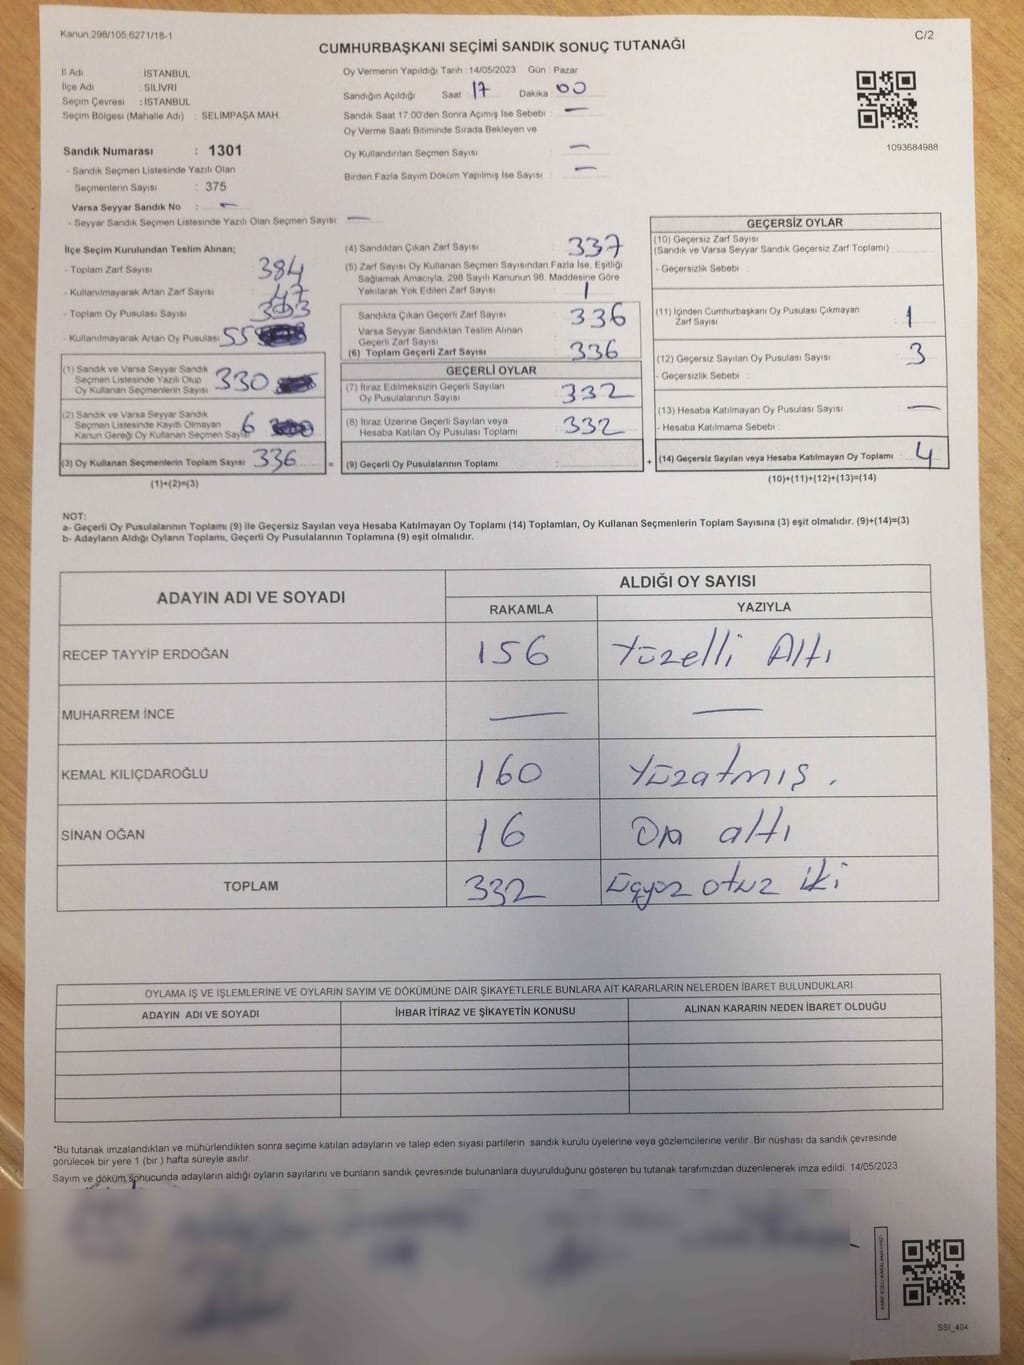 Kanun.298/105,6271/16-1
C/2
CUMHURBAŞKANI SEÇİMİ SANDIK SONUÇ TUTANAĞI
İl Adı : İSTANBUL
İlçe Adı : SİLİVRİ
Seçim Çevresi : İSTANBUL
Seçim Bölgesi (Mahalle Adı) : SELİMPAŞA MAH.
Sandık Numarası : 1301
- Sandık Seçmen Listesinde Yazılı Olan
Seçmenlerin Sayısı : 375
Varsa Seyyar Sandık No : —
- Seyyar Sandık Seçmen Listesinde Yazılı Olan Seçmen Sayısı : —
Oy Vermenin Yapıldığı Tarih : 14/05/2023 Gün : Pazar
Sandığın Açıldığı Saat 17 Dakika 00
Sandık Saat 17:00'den Sonra Açımış İse Sebebi : —
Oy Verme Saati Bitiminde Sırada Bekleyen ve
Oy Kullandırılan Seçmen Sayısı : —
Birden Fazla Sayım Döküm Yapılmış İse Sayısı : —
1093684988
İlçe Seçim Kurulundan Teslim Alınan;
- Toplam Zarf Sayısı 384
- Kullanılmayarak Artan Zarf Sayısı : 47
- Toplam Oy Pusulası Sayısı : 393
- Kullanılmayarak Artan Oy Pusulası 55
(1) Sandık ve Varsa Seyyar Sandık
Seçmen Listesinde Yazılı Olup
Oy Kullanan Seçmenlerin Sayısı 330
(2) Sandık ve Varsa Seyyar Sandık
Seçmen Listesinde Kayıtlı Olmayan
Kanun Gereği Oy Kullanan Seçmen Sayısı 6
(3) Oy Kullanan Seçmenlerin Toplam Sayısı 336
(1)+(2)=(3)
(4) Sandıktan Çıkan Zarf Sayısı 337
(5) Zarf Sayısı Oy Kullanan Seçmen Sayısından Fazla İse, Eşitliği
Sağlamak Amacıyla, 298 Sayılı Kanunun 98. Maddesine Göre
Yakılarak Yok Edilen Zarf Sayısı 1
Sandıkta Çıkan Geçerli Zarf Sayısı 336
Varsa Seyyar Sandıktan Teslim Alınan
Geçerli Zarf Sayısı
(6) Toplam Geçerli Zarf Sayısı 336
GEÇERLİ OYLAR
(7) İtiraz Edilmeksizin Geçerli Sayılan
Oy Pusulalarının Sayısı 332
(8) İtiraz Üzerine Geçerli Sayılan veya
Hesaba Katılan Oy Pusulası Toplamı 332
= (9) Geçerli Oy Pusulalarının Toplamı :
GEÇERSİZ OYLAR
(10) Geçersiz Zarf Sayısı
(Sandık ve Varsa Seyyar Sandık Geçersiz Zarf Toplamı)
- Geçersizlik Sebebi :
(11) İçinden Cumhurbaşkanı Oy Pusulası Çıkmayan
Zarf Sayısı 1
(12) Geçersiz Sayılan Oy Pusulası Sayısı 3
- Geçersizlik Sebebi :
(13) Hesaba Katılmayan Oy Pusulası Sayısı —
- Hesaba Katılmama Sebebi :
+ (14) Geçersiz Sayılan veya Hesaba Katılmayan Oy Toplamı 4
(10)+(11)+(12)+(13)=(14)
NOT:
a- Geçerli Oy Pusulalarının Toplamı (9) ile Geçersiz Sayılan veya Hesaba Katılmayan Oy Toplamı (14) Toplamları, Oy Kullanan Seçmenlerin Toplam Sayısına (3) eşit olmalıdır. (9)+(14)=(3)
b- Adayların Aldığı Oyların Toplamı, Geçerli Oy Pusulalarının Toplamına (9) eşit olmalıdır.
ADAYIN ADI VE SOYADI ALDIĞI OY SAYISI
RAKAMLA YAZIYLA
RECEP TAYYİP ERDOĞAN 156 Yüzelli Altı
MUHARREM İNCE — —
KEMAL KILIÇDAROĞLU 160 Yüzatmış .
SİNAN OĞAN 16 On altı
TOPLAM 332 Üçyüz otuz iki
OYLAMA İŞ VE İŞLEMLERİNE VE OYLARIN SAYIM VE DÖKÜMÜNE DAİR ŞİKAYETLERLE BUNLARA AİT KARARLARIN NELERDEN İBARET BULUNDUKLARI
ADAYIN ADI VE SOYADI İHBAR İTİRAZ VE ŞİKAYETİN KONUSU ALINAN KARARIN NEDEN İBARET OLDUĞU
*Bu tutanak imzalandıktan ve mühürlendikten sonra seçime katılan adayların ve talep eden siyasi partilerin sandık kurulu üyelerine veya gözlemcilerine verilir. Bir nüshası da sandık çevresinde
görülecek bir yere 1 (bir ) hafta süreyle asılır.
Sayım ve döküm sonucunda adayların aldığı oyların sayılarını ve bunların sandık çevresinde bulunanlara duyurulduğunu gösteren bu tutanak tarafımızdan düzenlenerek imza edildi. 14/05/2023
SSİ_404